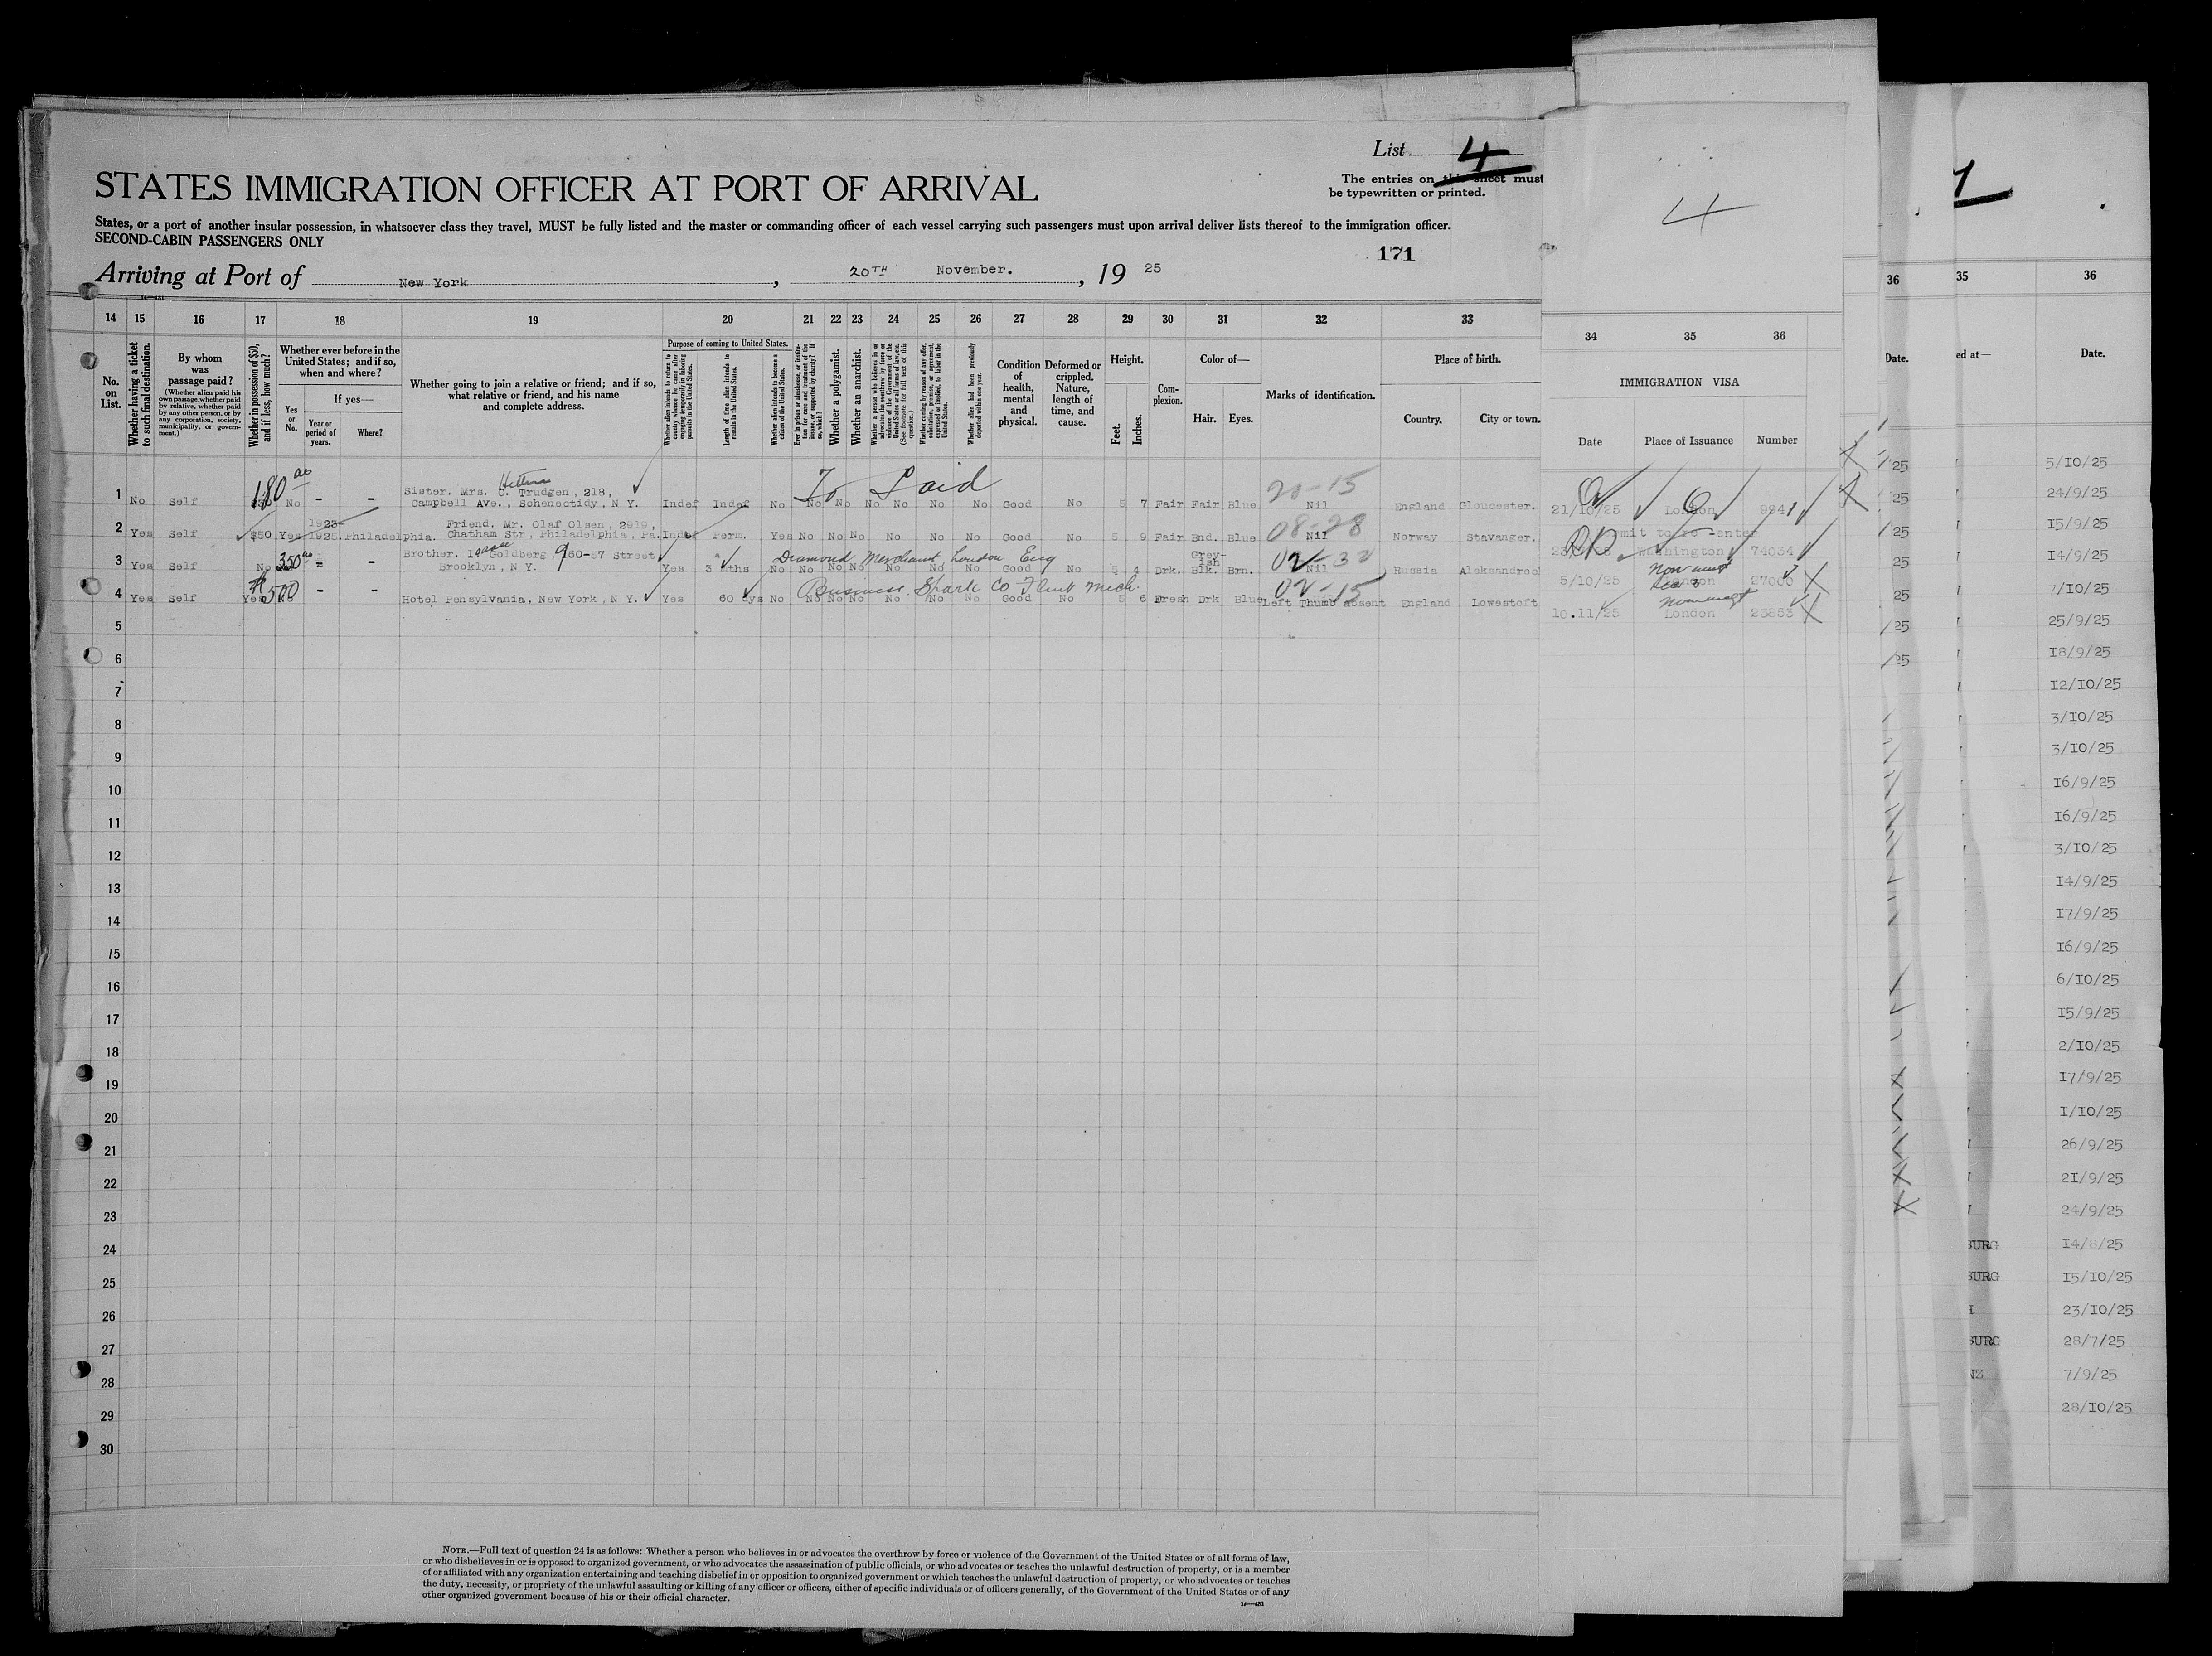 List 4
STATES IMMIGRATION OFFICER AT PORT OF ARRIVAL
The entries on this sheet must
be typewritten or printed.
4
States, or a port of another insular possession, in whatsoever class they travel, MUST be fully listed and the master or commanding officer of each vessel carrying such passengers must upon arrival deliver lists thereof to the immigration officer.
SECOND-CABIN PASSENGERS ONLY
171
Arriving at Port of New York, 20TH November., 19 25
14 15 16 17 18 19 20 21 22 23 24 25 26 27 28 29 30 31 32 33
34 35 36
36 35 36
No. on List.
Whether having a ticket to such final destination.
By whom was passage paid?
(Whether alien paid his own passage, whether paid by relative, whether paid by any other person, or by any corporation, society, municipality, or government.)
Whether in possession of $50, and if less, how much?
Whether ever before in the United States; and if so, when and where?
If yes—
Yes or No.
Year or period of years.
Where?
Whether going to join a relative or friend; and if so, what relative or friend, and his name and complete address.
Purpose of coming to United States.
Whether alien intends to return to country whence he came after engaging temporarily in laboring pursuits in the United States.
Length of time alien intends to remain in the United States.
Whether alien intends to become a citizen of the United States.
Whether a polygamist.
Whether an anarchist.
Condition of health, mental and physical.
Deformed or crippled. Nature, length of time, and cause.
Height.
Feet. Inches.
Complexion.
Color of—
Hair. Eyes.
Marks of identification.
Place of birth.
Country. City or town.
IMMIGRATION VISA
Date Place of Issuance Number
Date. ed at— Date.
1 No Self 180 No - - Sister. Mrs. C. Trudgen, 218,
Campbell Ave., Schenectidy, N Y. Indef Indef No No No No No No No No Good No 5 7 Fair Fair Blue Nil England Gloucester. 21/10/25 London
20-15
2 Yes Self $50 Yes 1923- 1925 Philadelphia. Friend. Mr. Olaf Olsen, 2919,
Chatham Str, Philadelphia, Pa. Indef Perm. Yes No No No No No No Good No 5 9 Fair Bnd. Blue Nil Norway Stavanger. Washington 74034
08-28
3 Yes Self No 350 - Brother. Isaac Goldberg, 960-57 Street
Brooklyn, N Y. Yes 3 mths No No No No No No No Good No 5 4 Drk. Grey-ish Blk. Brn. Nil Russia 5/10/25 London 27000
Diamond Merchant London Eng
4 Yes Self Yes $500 No - - Hotel Pensylvania, New York, N Y. Yes 60 dys No No No No No No No Good No 5 6 Fresh Drk Blue Left Thumb absent England Lowestoft 10.11/25 London 23853
Business. Spark Co Flint Mich.
02-15
5
6
7
8
9
10
11
12
13
14
15
16
17
18
19
20
21
22
23
24
25
26
27
28
29
30
5/10/25
24/9/25
15/9/25
14/9/25
7/10/25
25/9/25
18/9/25
12/10/25
3/10/25
3/10/25
16/9/25
16/9/25
3/10/25
14/9/25
17/9/25
16/9/25
6/10/25
15/9/25
2/10/25
17/9/25
1/10/25
26/9/25
21/9/25
24/9/25
BURG 14/8/25
BURG 15/10/25
23/10/25
BURG 28/7/25
NZ 7/9/25
28/10/25
NOTE.—Full text of question 24 is as follows: Whether a person who believes in or advocates the overthrow by force or violence of the Government of the United States or of all forms of law,
or who disbelieves in or is opposed to organized government, or who advocates the assassination of public officials, or who advocates or teaches the unlawful destruction of property, or is a member
of or affiliated with any organization entertaining and teaching disbelief in or opposition to organized government or which teaches the unlawful destruction of property, or who advocates or teaches
the duty, necessity, or propriety of the unlawful assaulting or killing of any officer or officers, either of specific individuals or of officers generally, of the Government of the United States or of any
other organized government because of his or their official character.